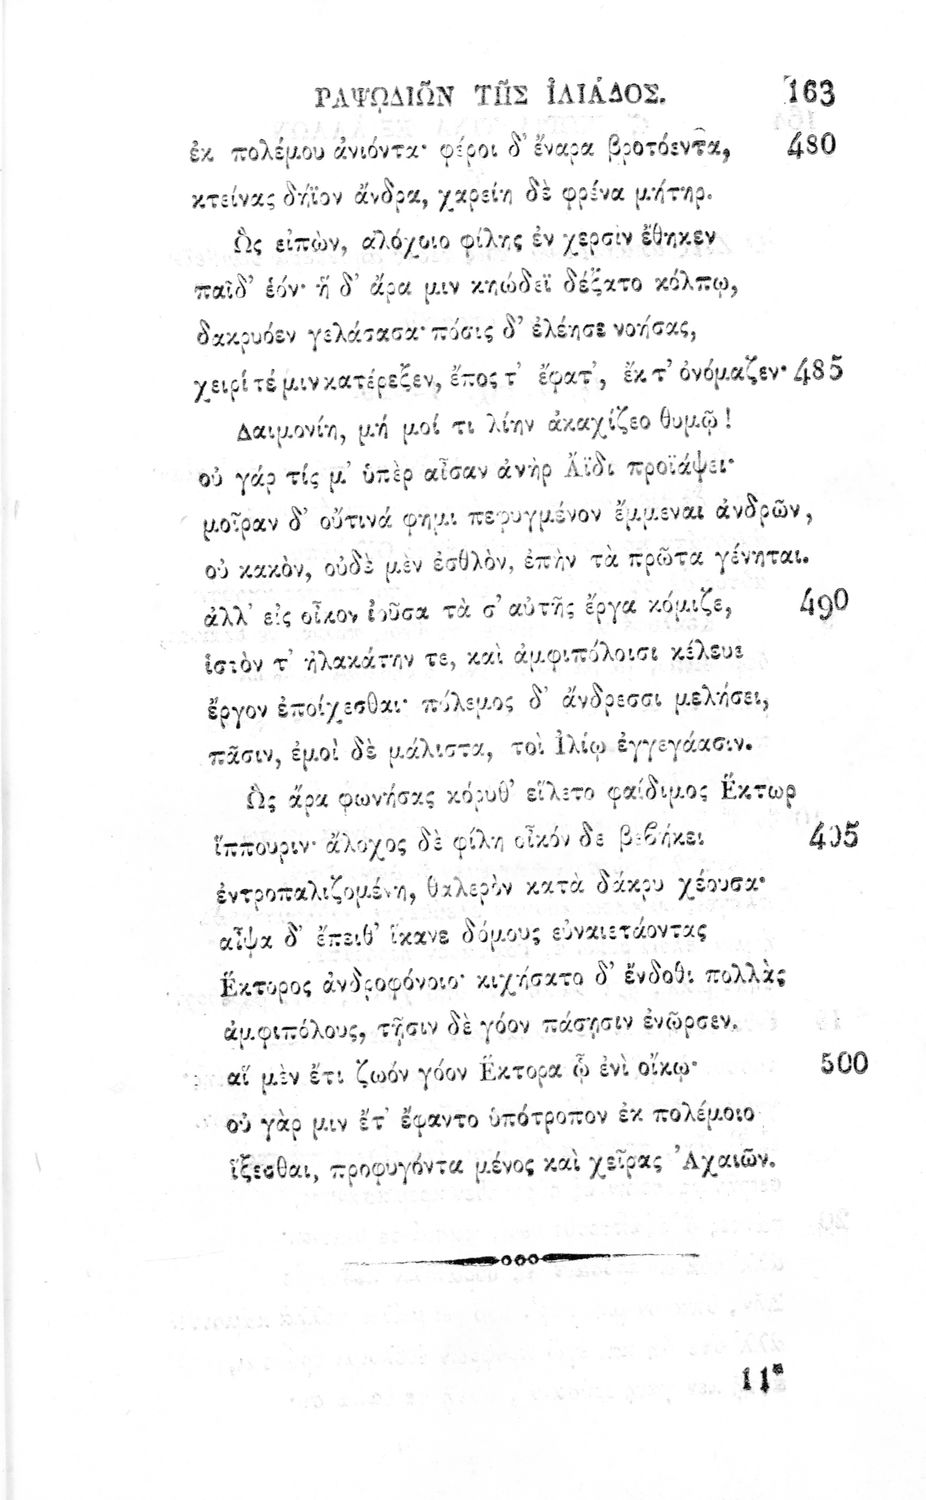 ΡΑΨΩΔΙΩ͂Ν ΤΗ͂Σ ἸΛΙΆΔΟΣ. 163
ἐκ πολέμου ἀνιόντα· φέροι δ' ἔναρα βροτόεντα, 480
κτείνας δήϊον ἄνδρα, χαρείη δὲ φρένα μήτηρ.
Ὣς εἰπὼν, ἀλόχοιο φίλης ἐν χερσὶν ἔθηκεν
παῖδ' ἑόν· ἡ δ' ἄρα μιν κηώδεϊ δέξατο κόλπῳ,
δακρυόεν γελάσασα· πόσις δ' ἐλέησε νοήσας,
χειρί τέ μιν κατέρεξεν, ἔπος τ' ἔφατ', ἔκ τ' ὀνόμαζεν· 485
Δαιμονίη, μή μοί τι λίην ἀκαχίζεο θυμῷ!
οὐ γάρ τίς μ' ὑπὲρ αἶσαν ἀνὴρ Ἄϊδι προϊάψει·
μοῖραν δ' οὔτινά φημι πεφυγμένον ἔμμεναι ἀνδρῶν,
οὐ κακὸν, οὐδὲ μὲν ἐσθλὸν, ἐπὴν τὰ πρῶτα γένηται.
ἀλλ' εἰς οἶκον ἰοῦσα τὰ σ' αὐτῆς ἔργα κόμιζε, 490
ἱστὸν τ' ἠλακάτην τε, καὶ ἀμφιπόλοισι κέλευε
ἔργον ἐποίχεσθαι· πόλεμος δ' ἄνδρεσσι μελήσει,
πᾶσιν, ἐμοὶ δὲ μάλιστα, τοὶ Ἰλίῳ ἐγγεγάασιν.
Ὣς ἄρα φωνήσας κόρυθ' εἵλετο φαίδιμος Ἕκτωρ
ἵππουριν· ἄλοχος δὲ φίλη οἶκόν δε βεβήκει 495
ἐντροπαλιζομένη, θαλερὸν κατὰ δάκρυ χέουσα·
αἶψα δ' ἔπειθ' ἵκανε δόμους εὐναιετάοντας
Ἕκτορος ἀνδροφόνοιο· κιχήσατο δ' ἔνδοθι πολλὰς
ἀμφιπόλους, τῇσιν δὲ γόον πάσῃσιν ἐνῶρσεν.
αἵ μὲν ἔτι ζωόν γόον Ἕκτορα ᾧ ἐνὶ οἴκῳ· 500
οὐ γὰρ μιν ἔτ' ἔφαντο ὑπότροπον ἐκ πολέμοιο
ἵξεσθαι, προφυγόντα μένος καὶ χεῖρας Ἀχαιῶν.
11*